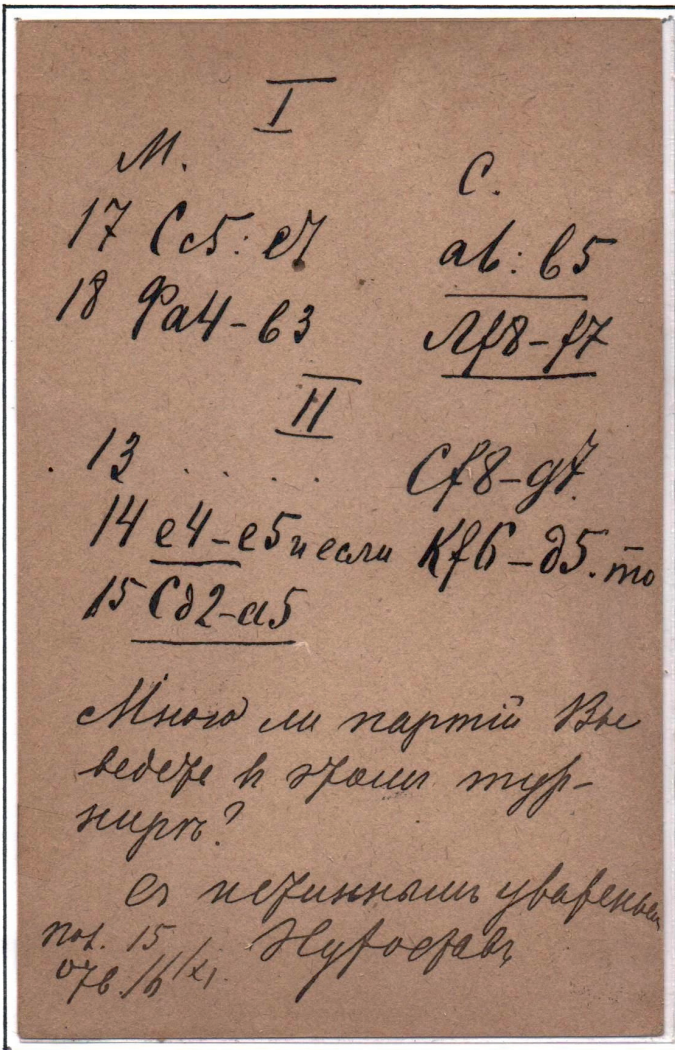 I
М. С.
17 Сс5:е7 ab:b5
18 Фа4-в3 Лf8-f7
II
13 . . . . . Cf8-g7.
14 е4-е5 и если Кf6-д5. то
15 Сд2-а5
Много ли партій Вы
ведете в этомъ тур-
нирѣ?
съ истиннымъ уваженьем
пол. 15
отв. 16/XI.